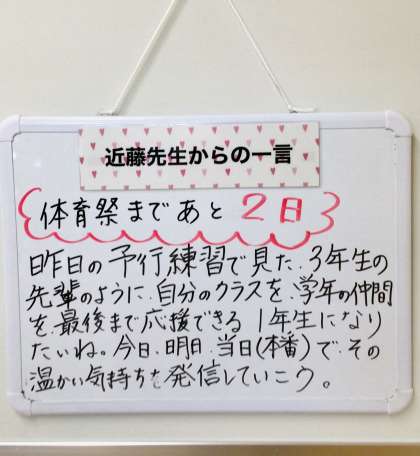 近藤先生からの一言
体育祭まであと 2日
昨日の予行練習で見た、3年生の
先輩のように、自分のクラスを、学年の仲間
を、最後まで応援できる1年生になり
たいね。今日、明日、当日(本番)で、その
温かい気持ちを発信していこう。